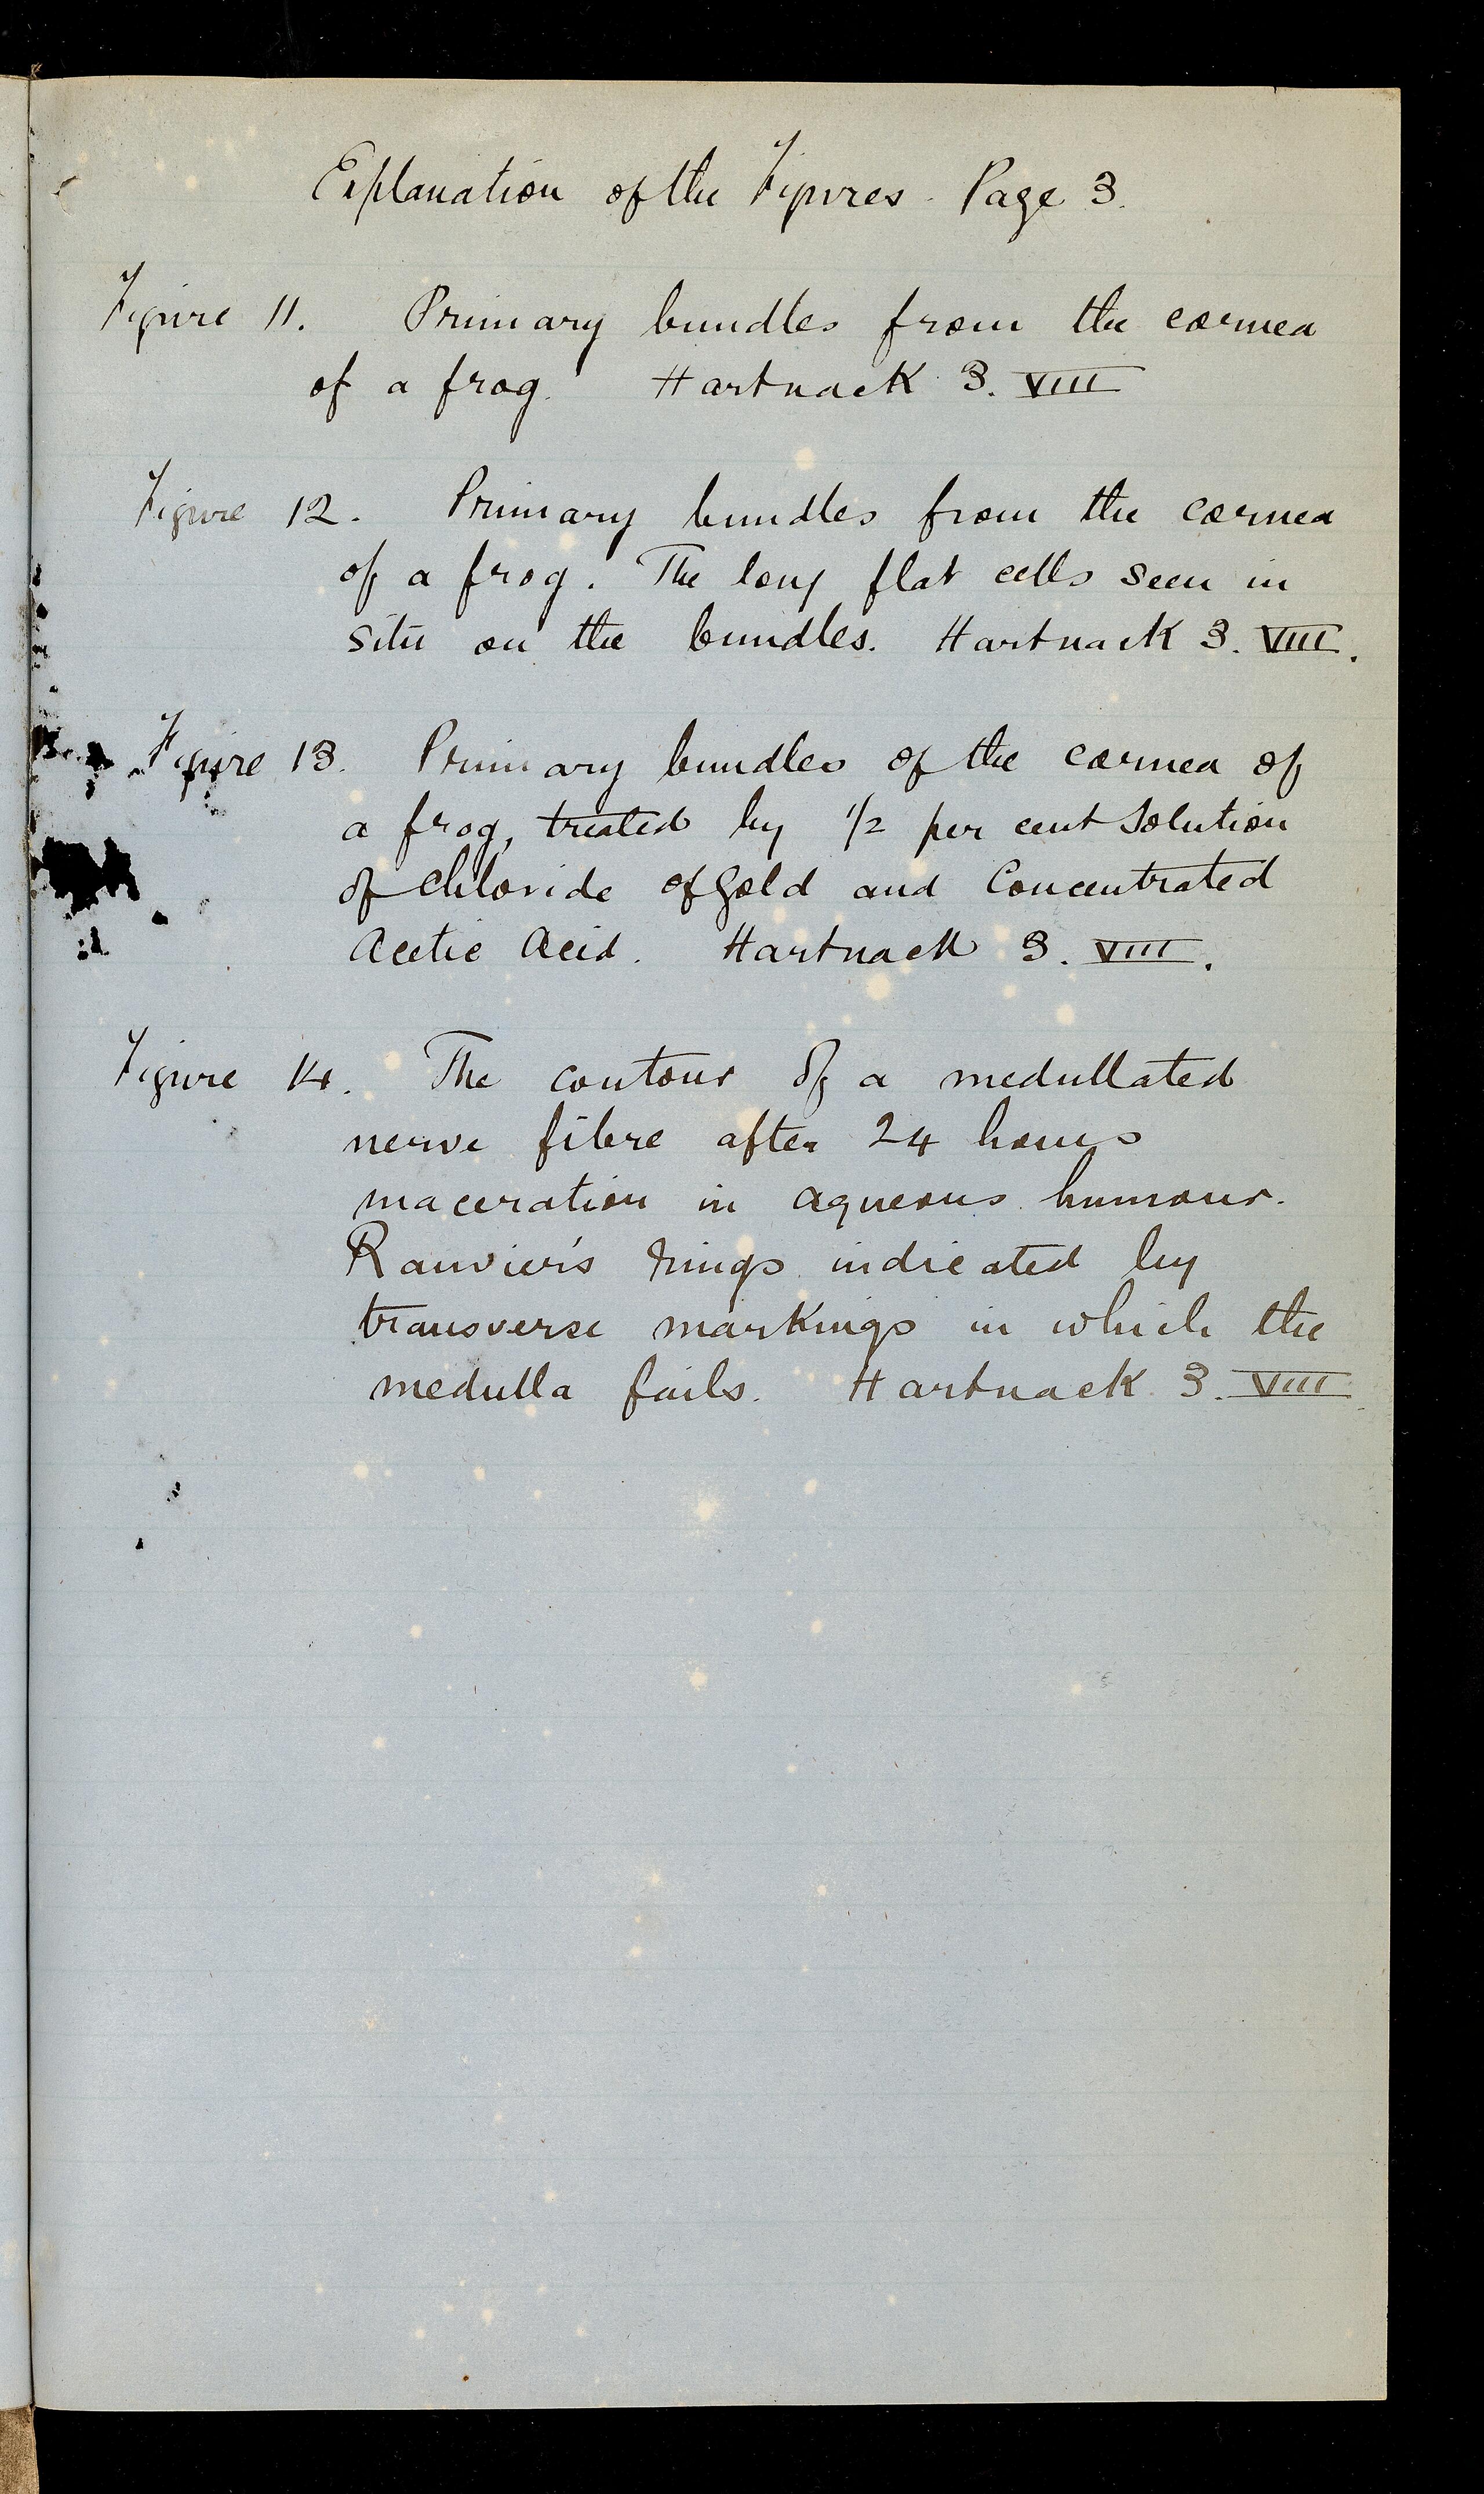 Explanation of the Figures. Page 3.
Figure 11. Primary bundles from the cornea
of a frog. Hartnack 3. VIII
Figure 12. Primary bundles from the cornea
of a frog. The long flat cells seen in
situ on the bundles. Hartnack 3. VIII.
Figure 13. Primary bundles of the cornea of
a frog, treated by 1/2 per cent Solution
of Chloride of Gold and Concentrated
Acetic Acid. Hartnack 3. VIII.
Figure 14. The contour of a medullated
nerve fibre after 24 hours
maceration in aqueous humour.
Ranvier's rings indicated by
transverse markings in which the
medulla fails. Hartnack 3. VIII